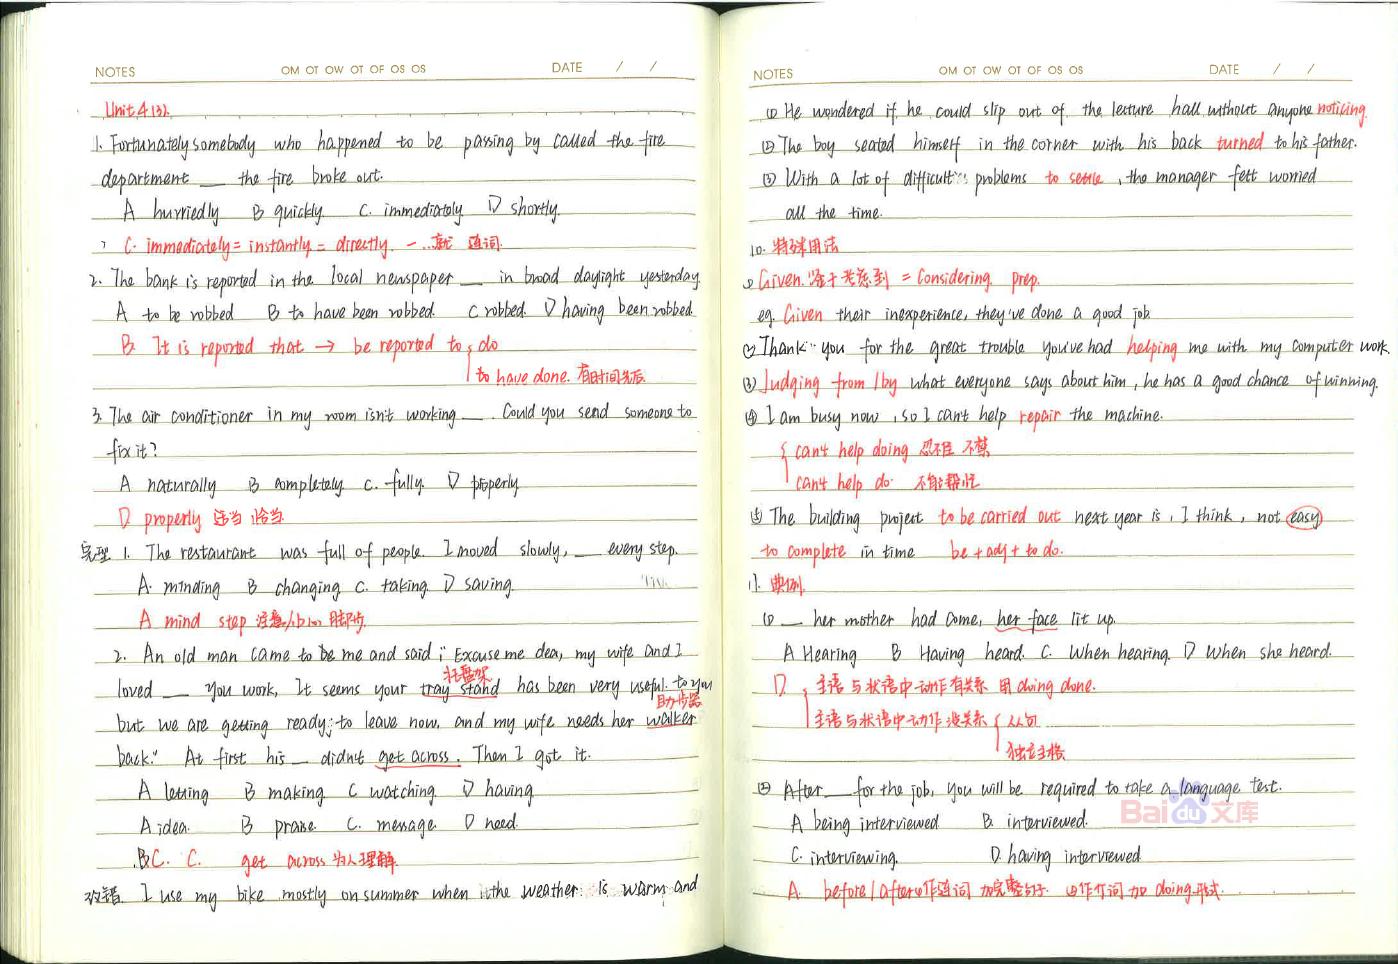 NOTES OM OT OW OT OF OS OS DATE / /
Unit 4 (3).
1. Fortunately somebody who happened to be passing by called the fire
department __ the fire broke out.
A hurriedly B quickly. C. immediately D shortly.
C. immediately = instantly = directly. 一…就 连词.
2. The bank is reported in the local newspaper __ in broad daylight yesterday.
A to be robbed B to have been robbed. C robbed. D having been robbed.
B. It is reported that → be reported to do
to have done. 有时间先后.
3. The air conditioner in my room isn't working __. Could you send someone to
fix it?
A naturally B completely C. fully. D properly.
D properly 适当 恰当.
完型 1. The restaurant was full of people. I moved slowly, __ every step.
A. minding B changing C. taking. D saving.
A mind step 注意/小心 脚步.
2. An old man came to me and said: "Excuse me dea, my wife and I
托盘架
loved __ you work, It seems your tray stand has been very useful. to you
助步器
but we are getting ready to leave now, and my wife needs her walker
back." At first his __ didn't get across. Then I got it.
A letting B making C watching. D having
A idea. B praise. C. message. D need.
B.C. C. get across 为人理解.
改错. I use my bike mostly on summer when the weather is warm and
NOTES OM OT OW OT OF OS OS DATE / /
① He wondered if he could slip out of the lecture hall without anyone noticing.
② The boy seated himself in the corner with his back turned to his father.
③ With a lot of difficult problems to settle, the manager felt worried
all the time.
10. 特殊用法
① Given. 鉴于 考虑到 = Considering. prep.
eg. Given their inexperience, they've done a good job.
② Thank you for the great trouble you've had helping me with my computer work.
③ Judging from / by what everyone says about him, he has a good chance of winning.
④ I am busy now, so I can't help repair the machine.
can't help doing 忍不住 不禁
can't help do 不能帮忙
⑤ The building project to be carried out next year is, I think, not easy
to complete in time be + adj + to do.
11. 典例.
① __ her mother had come, her face lit up.
A Hearing B Having heard. C. When hearing. D When she heard.
D. 主语与状语中动作有关系 用 doing done.
主语与状语中动作没关系 从句
独立主格
② After __ for the job, you will be required to take a language test.
A being interviewed B. interviewed.
C. interviewing. D. having interviewed
A. before / after ①作连词 加完整句子. ②作介词 加 doing 形式.
Bai du 文库